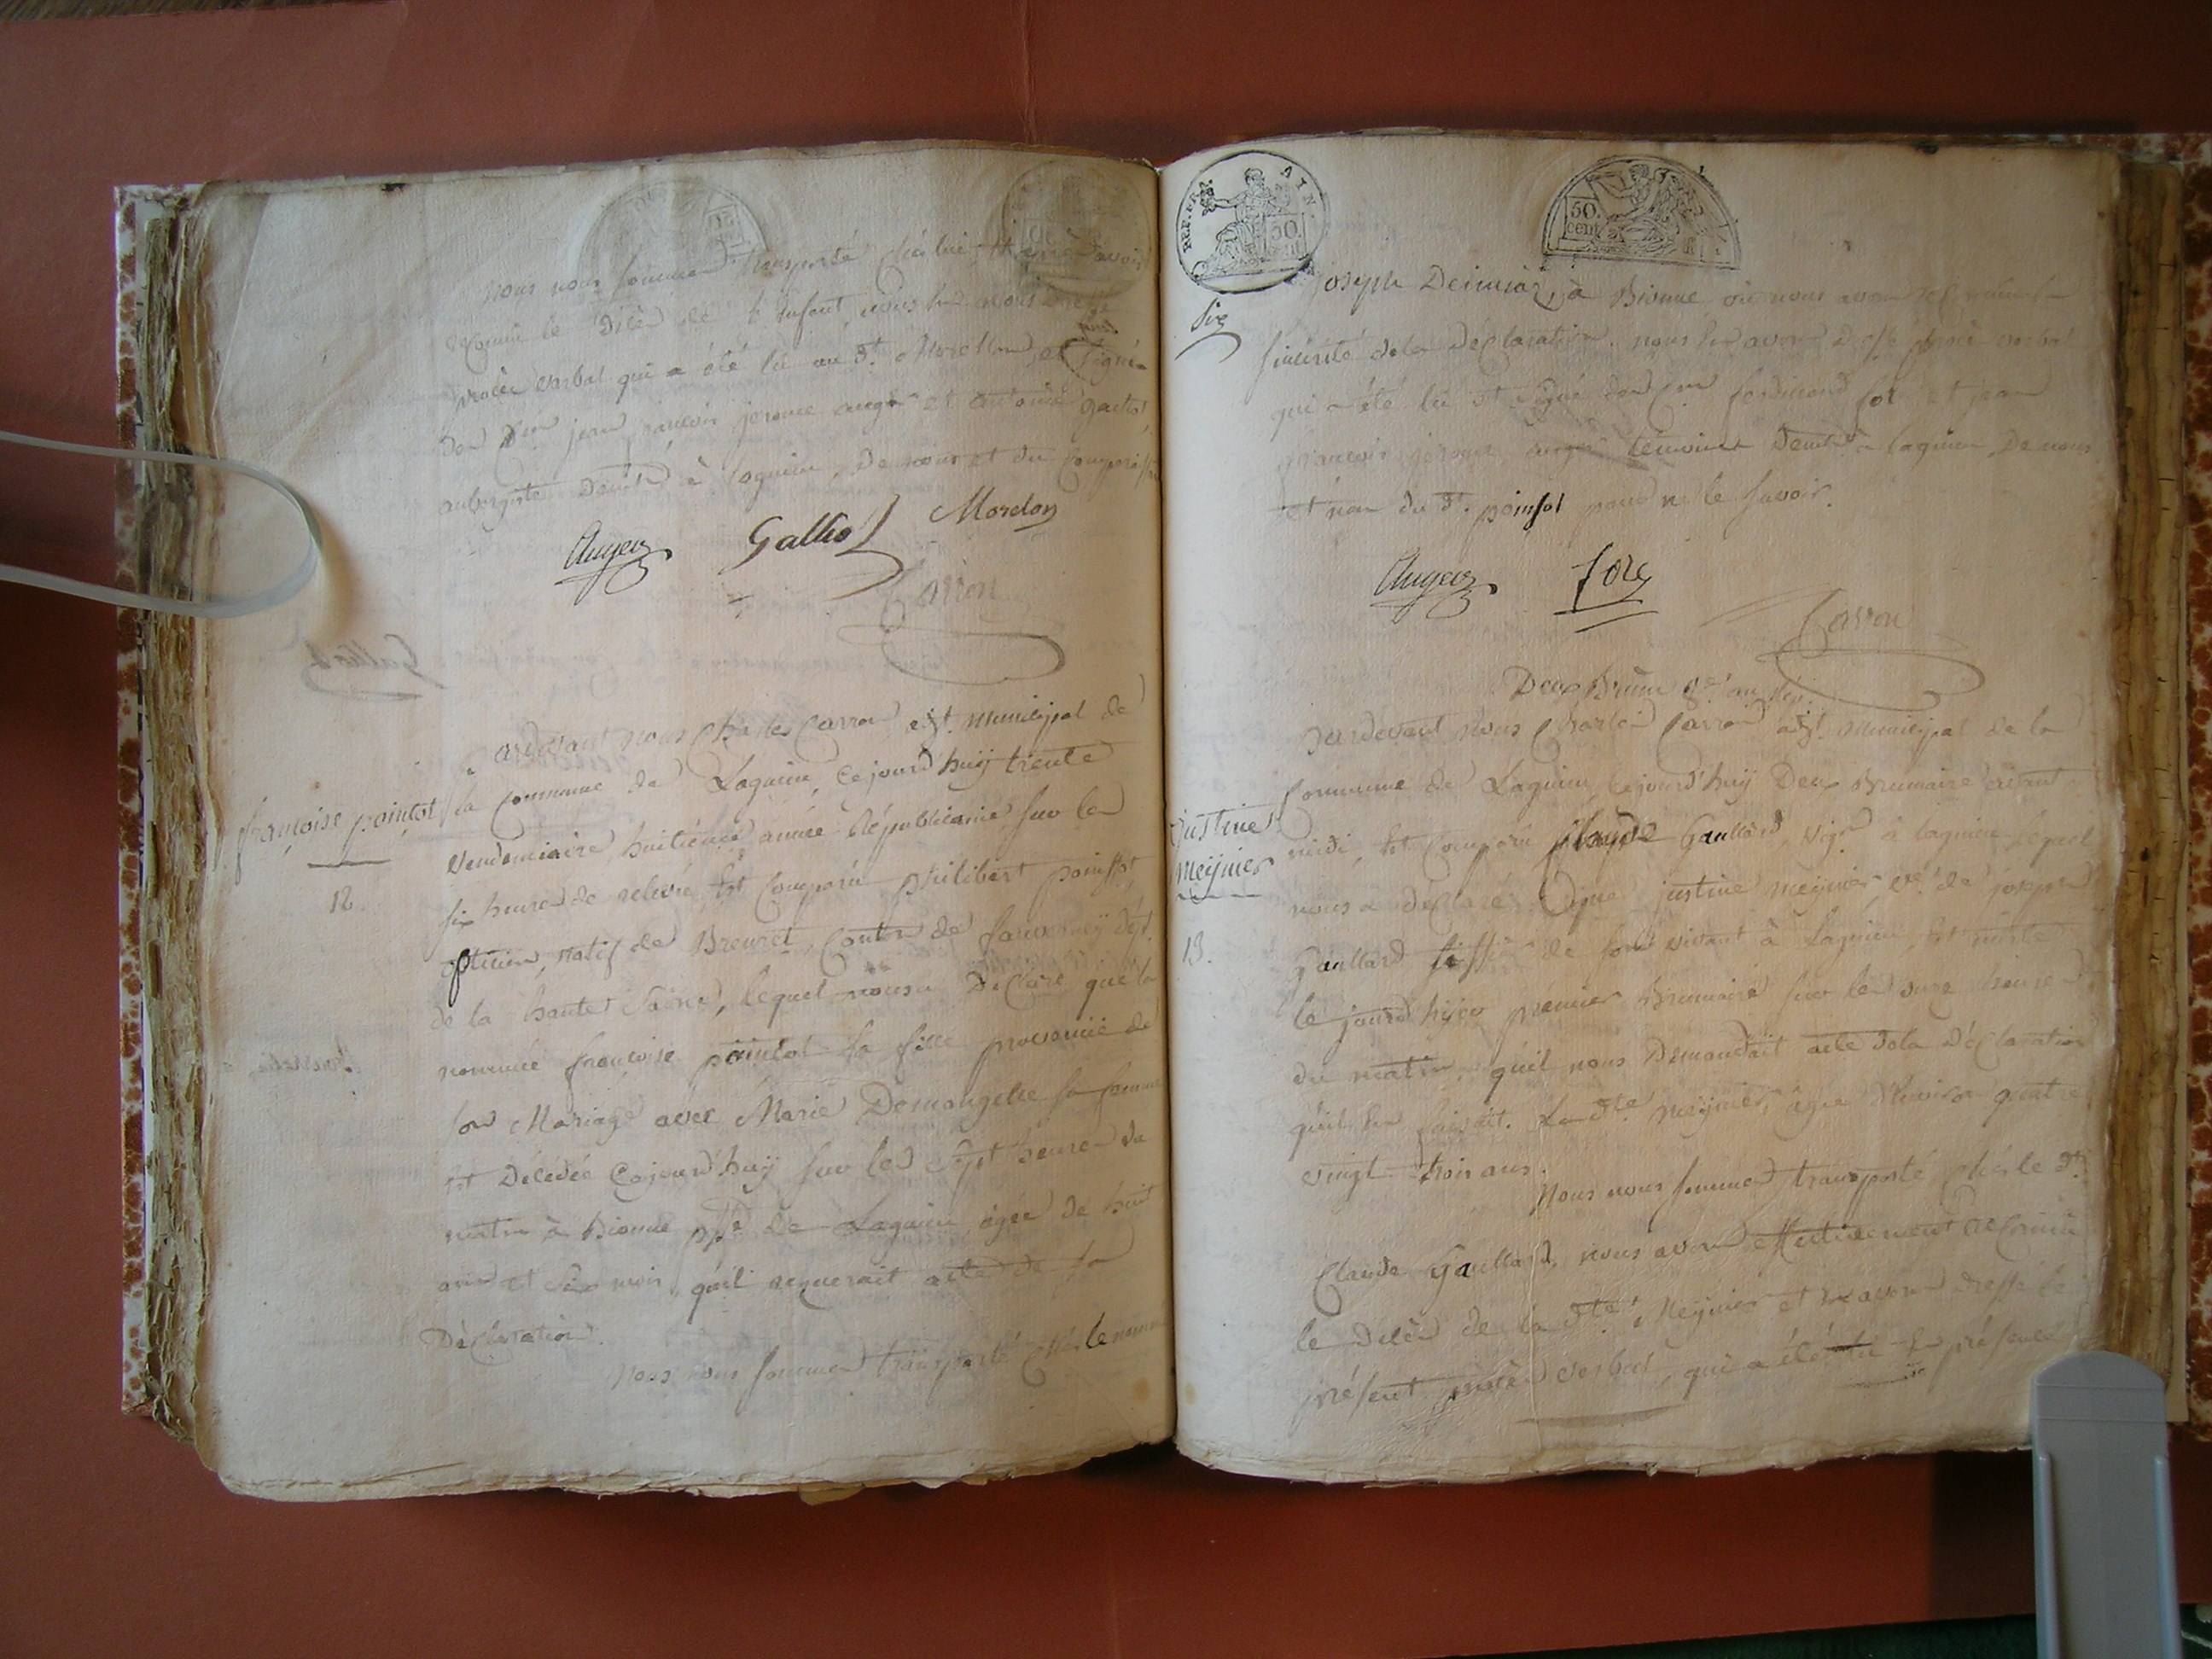 nous nous sommes transporté chés lui, et après avoir
reconnu le décès de l'enfant, nous en avons dressé
procès verbal qui a été lu au dt. Morellon, et signé
des Cens jean françois jerome auger et antoine galliot
aubergiste demt à lagnieu, de nous et du comparissant
Auger Galliot Morelon
Carron
françoise pointot
12.
Pardevant nous Charles Carron agt. municipal de
la Commune de Lagnieu, Cejourd'huÿ trente
vendemiaire, huitième année Républicaine, sur les
six heures de relevée, Est Comparu philibert poinssot
opticien, natif de Breuret, canton de fauverneÿ dept.
de la haute Saône, lequel nous a Déclaré que la
nommée françoise pointot sa fille provenue de
son Mariage avec Marie Demangelle sa femme
est Décédée Cejourd'huÿ sur les sept heures du
matin à Bionne ppse de Lagnieu, agée de huit
ans et six mois, qu'il requerait acte de sa
Déclaration.
Nous nous sommes transporté chés le nommé
REP. FRA. AIN.
50. cent.
50. cent
Six
joseph Deimiaz, à Bionne, où nous avons reconnu la
sincérité de la Déclaration. nous en avons dressé procès verbal
qui a été lu et signé des Cens ferdinand fore et jean
françois jerome auger témoins demt à lagnieu, De nous
et non du dt. poinsot pour ne le savoir.
Auger fore
Carron
Deux Brumre 8e. an Rép.
justine
meÿnier
13.
Pardevant nous Charles Carron agt. municipal de la
Commune de Lagnieu, Cejourd'huÿ Deux Brumaire avant
midi, Est Comparu Claude Gaullard, vigr à lagnieu lequel
nous a déclaré que justine meÿnier ve. de joseph
Gaullard de son vivant à lagnieu, Est morte
le jourd'hier premier Brumaire sur les onze heures
du matin, qu'il nous Demandait acte de la Déclaration
qu'il en faisait. La dte. meÿnier, agée d'environ quatre
vingt trois ans.
Nous nous sommes transporté chés le dt.
Claude Gaullard, nous avons effectivement reconnu
le décès de la dte. Meÿnier et en avons dressé le
présent procès verbal, qui a été lu En présence